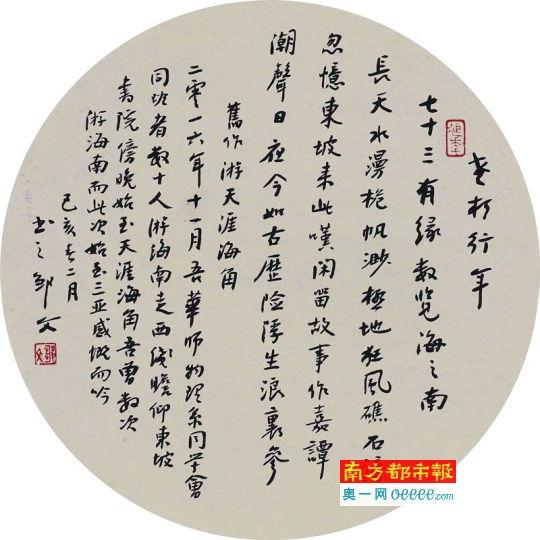 老朽行年
七十三有缘数览海之南
長天水漫桅帆渺極地狂風礁石
忽憶東坡来此嘆闲留故事作嘉譚
潮聲日夜今如古歷险浮生浪裏參
舊作游天涯海角
二零一六年十一月吾華師物理系同学會
同游者数十人游海南走西线瞻仰東坡
書院傍晚始至天涯海角吾曾数次
游海南而此次始至三亚感慨而吟
己亥春二月
邹文
南方都市報
奥一网oeeee.com